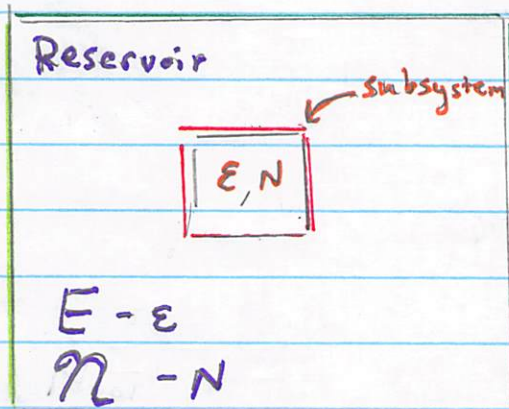 Reservoir
subsystem
ε, N
E - ε
𝒩 - N